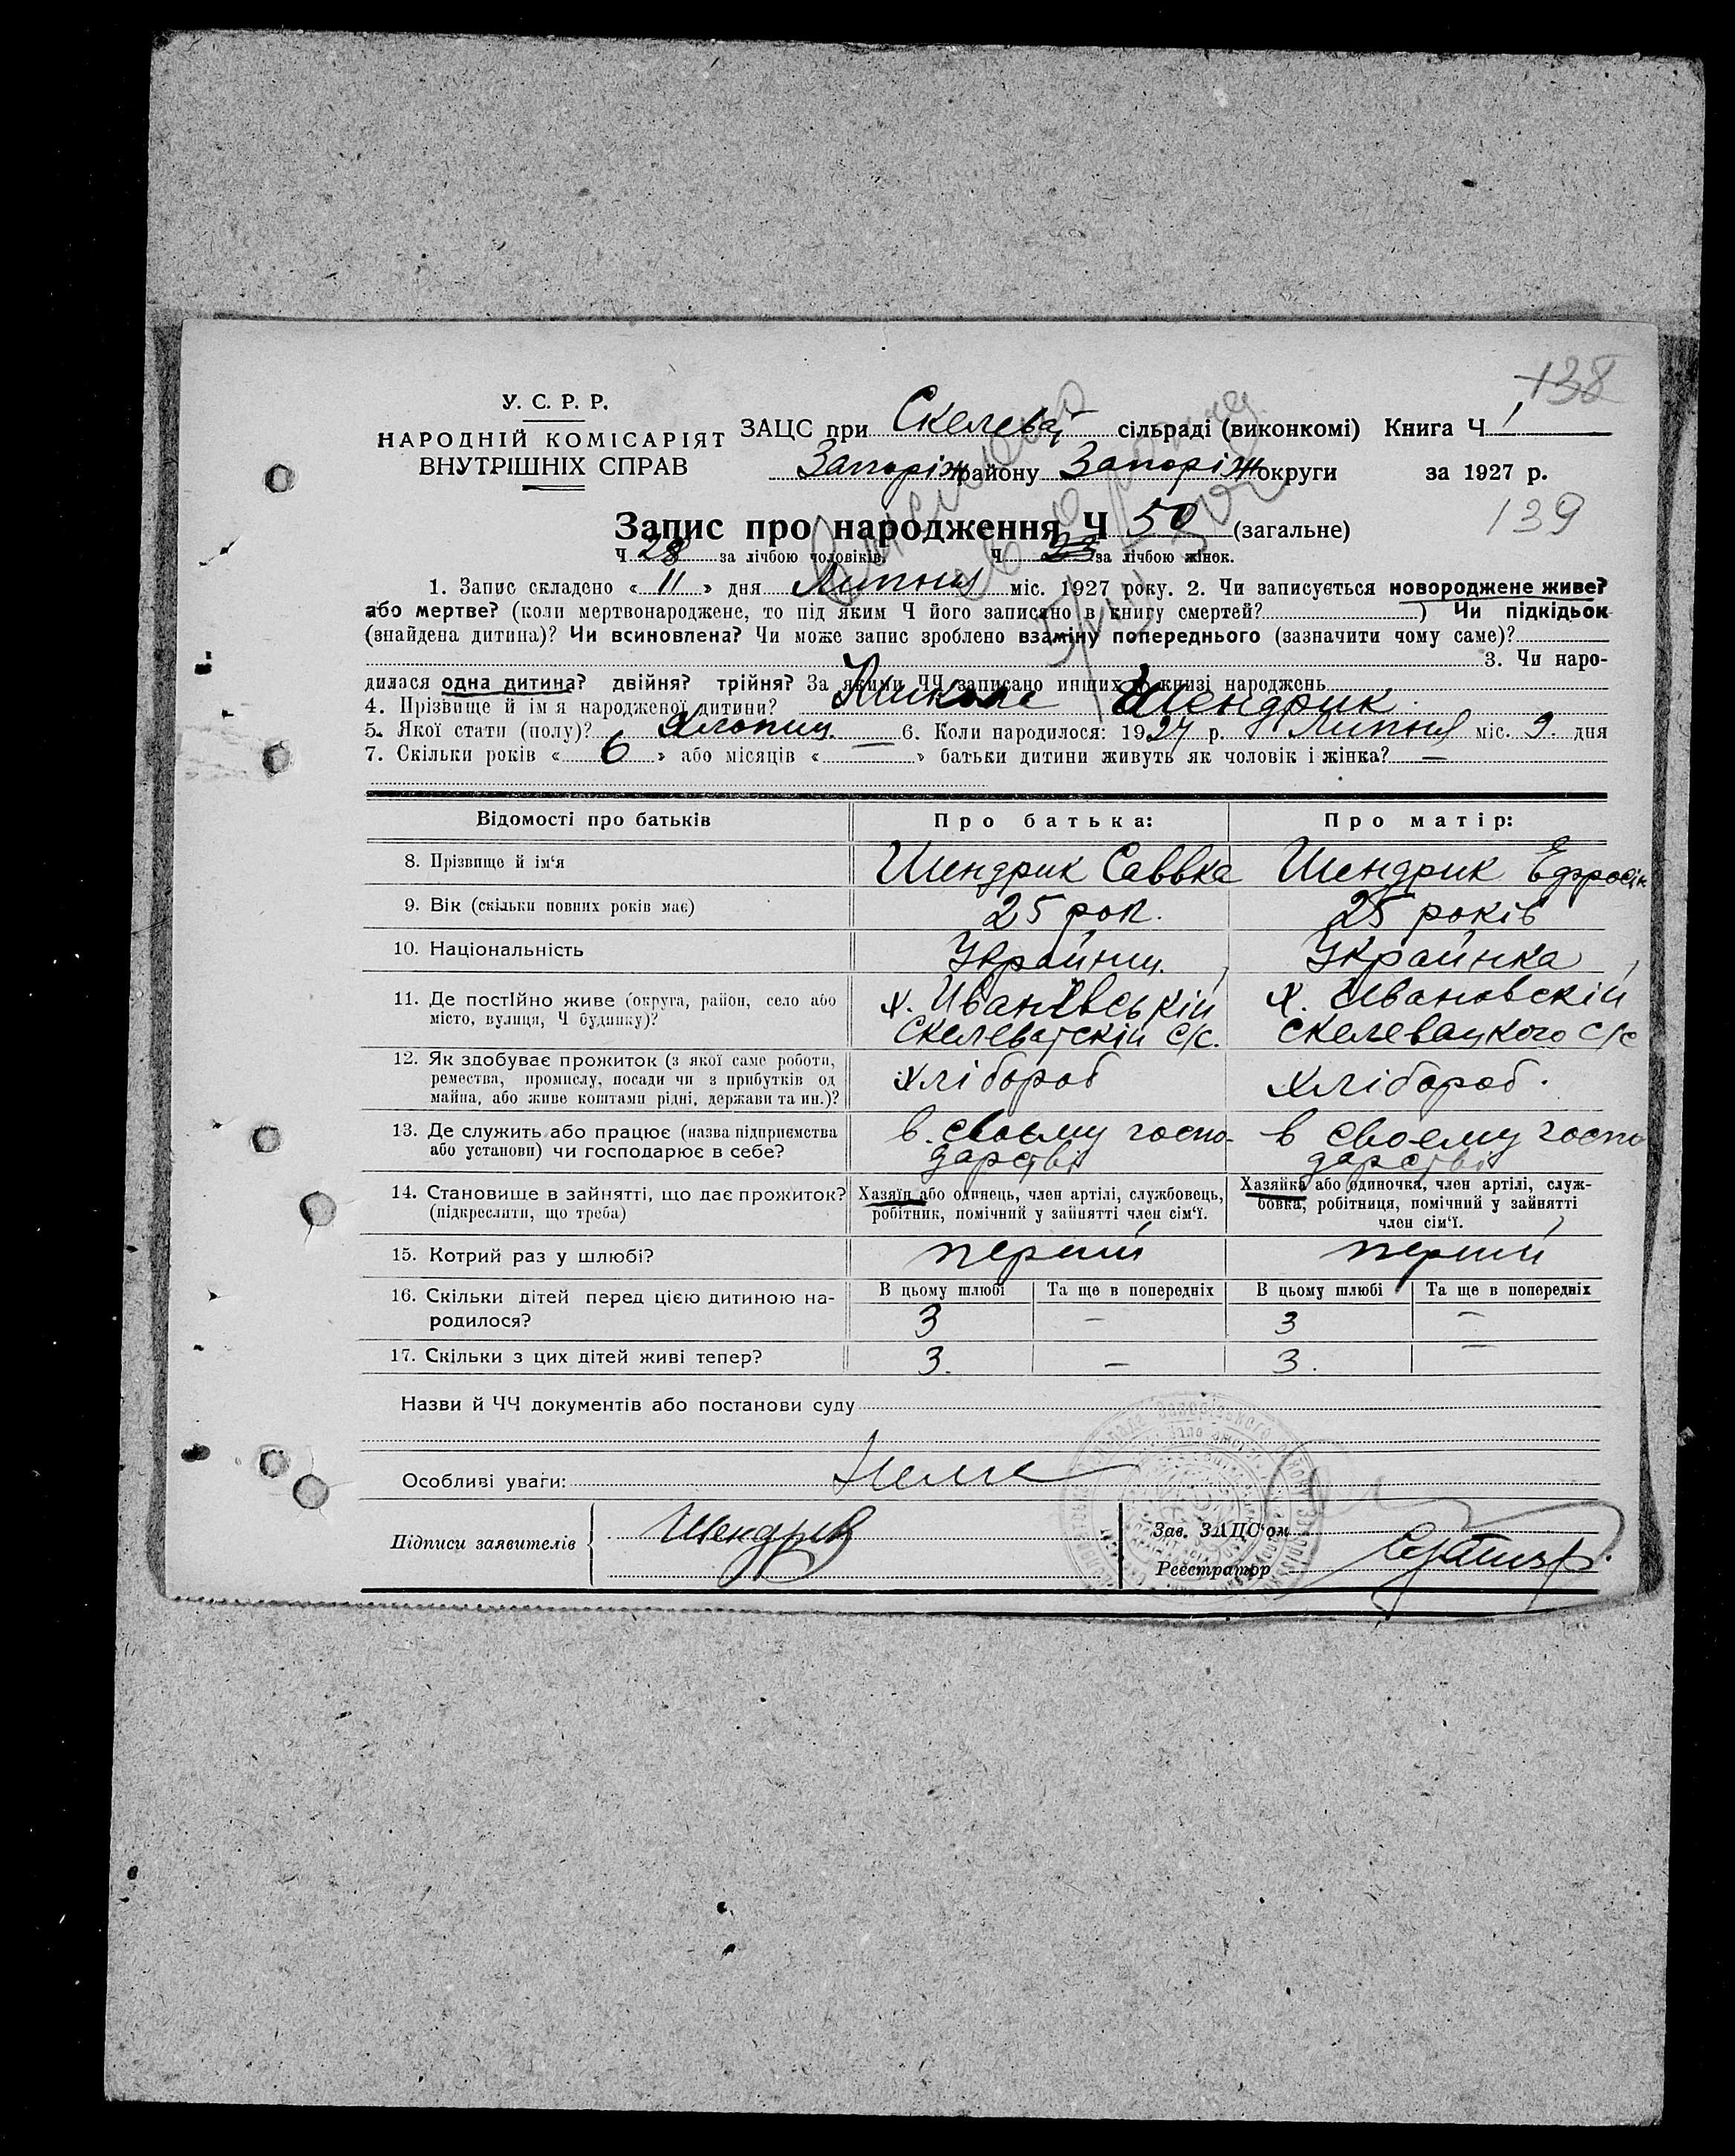 138
У. С. Р. Р.
НАРОДНІЙ КОМІСАРІЯТ
ВНУТРІШНІХ СПРАВ
ЗАЦС при Скелеват сільраді (виконкомі) Книга Ч 1
Запоріж району Запоріж округи за 1927 р.
139
Запис про народження Ч 50 (загальне)
Ч 28 за лічбою чоловіків. Ч 23 за лічбою жінок.
1. Запис складено « 11 » дня Липня міс. 1927 року. 2. Чи записується новороджене живе?
або мертве? (коли мертвонароджене, то під яким Ч його записано в книгу смертей? ) Чи підкідьок
(знайдена дитина)? Чи всиновлена? Чи може запис зроблено взаміну попереднього (зазначити чому саме)?
3. Чи наро-
дилася одна дитина? двійня? трійня? За якими ЧЧ записано инших в книзі народжень
4. Прізвище й ім я народженої дитини? Микола Шендрик
5. Якої стати (полу)? Хлопиц. 6. Коли народилося: 1927 р. Липня міс. 9. дня
7. Скільки років « 6 » або місяців « — » батьки дитини живуть як чоловік і жінка? —
Відомості про батьків Про батька: Про матір:
8. Прізвище й ім‘я Шендрик Саввка Шендрик Ефросін
9. Вік (скільки повних років має) 25 рок. 25 років
10. Національність Українц. Українка
11. Де постІйно живе (округа, район, село або х. Иванівській х. Ивановскій
місто, вулиця, Ч будинку)? Скелеватскій с/с. Скелевацкого с/с
12. Як здобуває прожиток (з якої саме роботи, хлібороб хлібороб.
ремества, промислу, посади чи з прибутків од
майна, або живе коштами рідні, держави та ин.)?
13. Де служить або працює (назва підприємства в. своєму госпо- в своему госпо
або установи) чи господарює в себе? дарстві дарстві
14. Становище в зайнятті, що дає прожиток? Хазяїн або одинець, член артілі, службовець, Хазяйка або одиночка, член артілі, служ-
(підкреслити, що треба) робітник, помічний у зайнятті член сім‘ї. бовка, робітниця, помічний у зайнятті
член сім‘ї.
15. Котрий раз у шлюбі? перший перший
16. Скільки дітей перед цією дитиною на- В цьому шлюбі Та ще в попередніх В цьому шлюбі Та ще в попередніх
родилося? 3 — 3 —
17. Скільки з цих дітей живі тепер? 3. — 3. —
Назви й ЧЧ документів або постанови суду
Особливі уваги: Нема
Підписи заявителів Шендрик Зав. ЗАЦС‘ом
Реєстратор